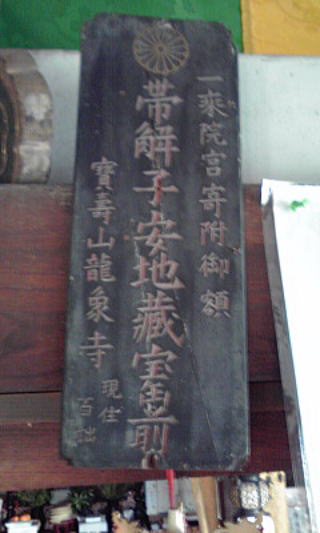 一乘院宮寄附御額
帶解子安地藏宝前
寶壽山龍象寺
現住
百拙